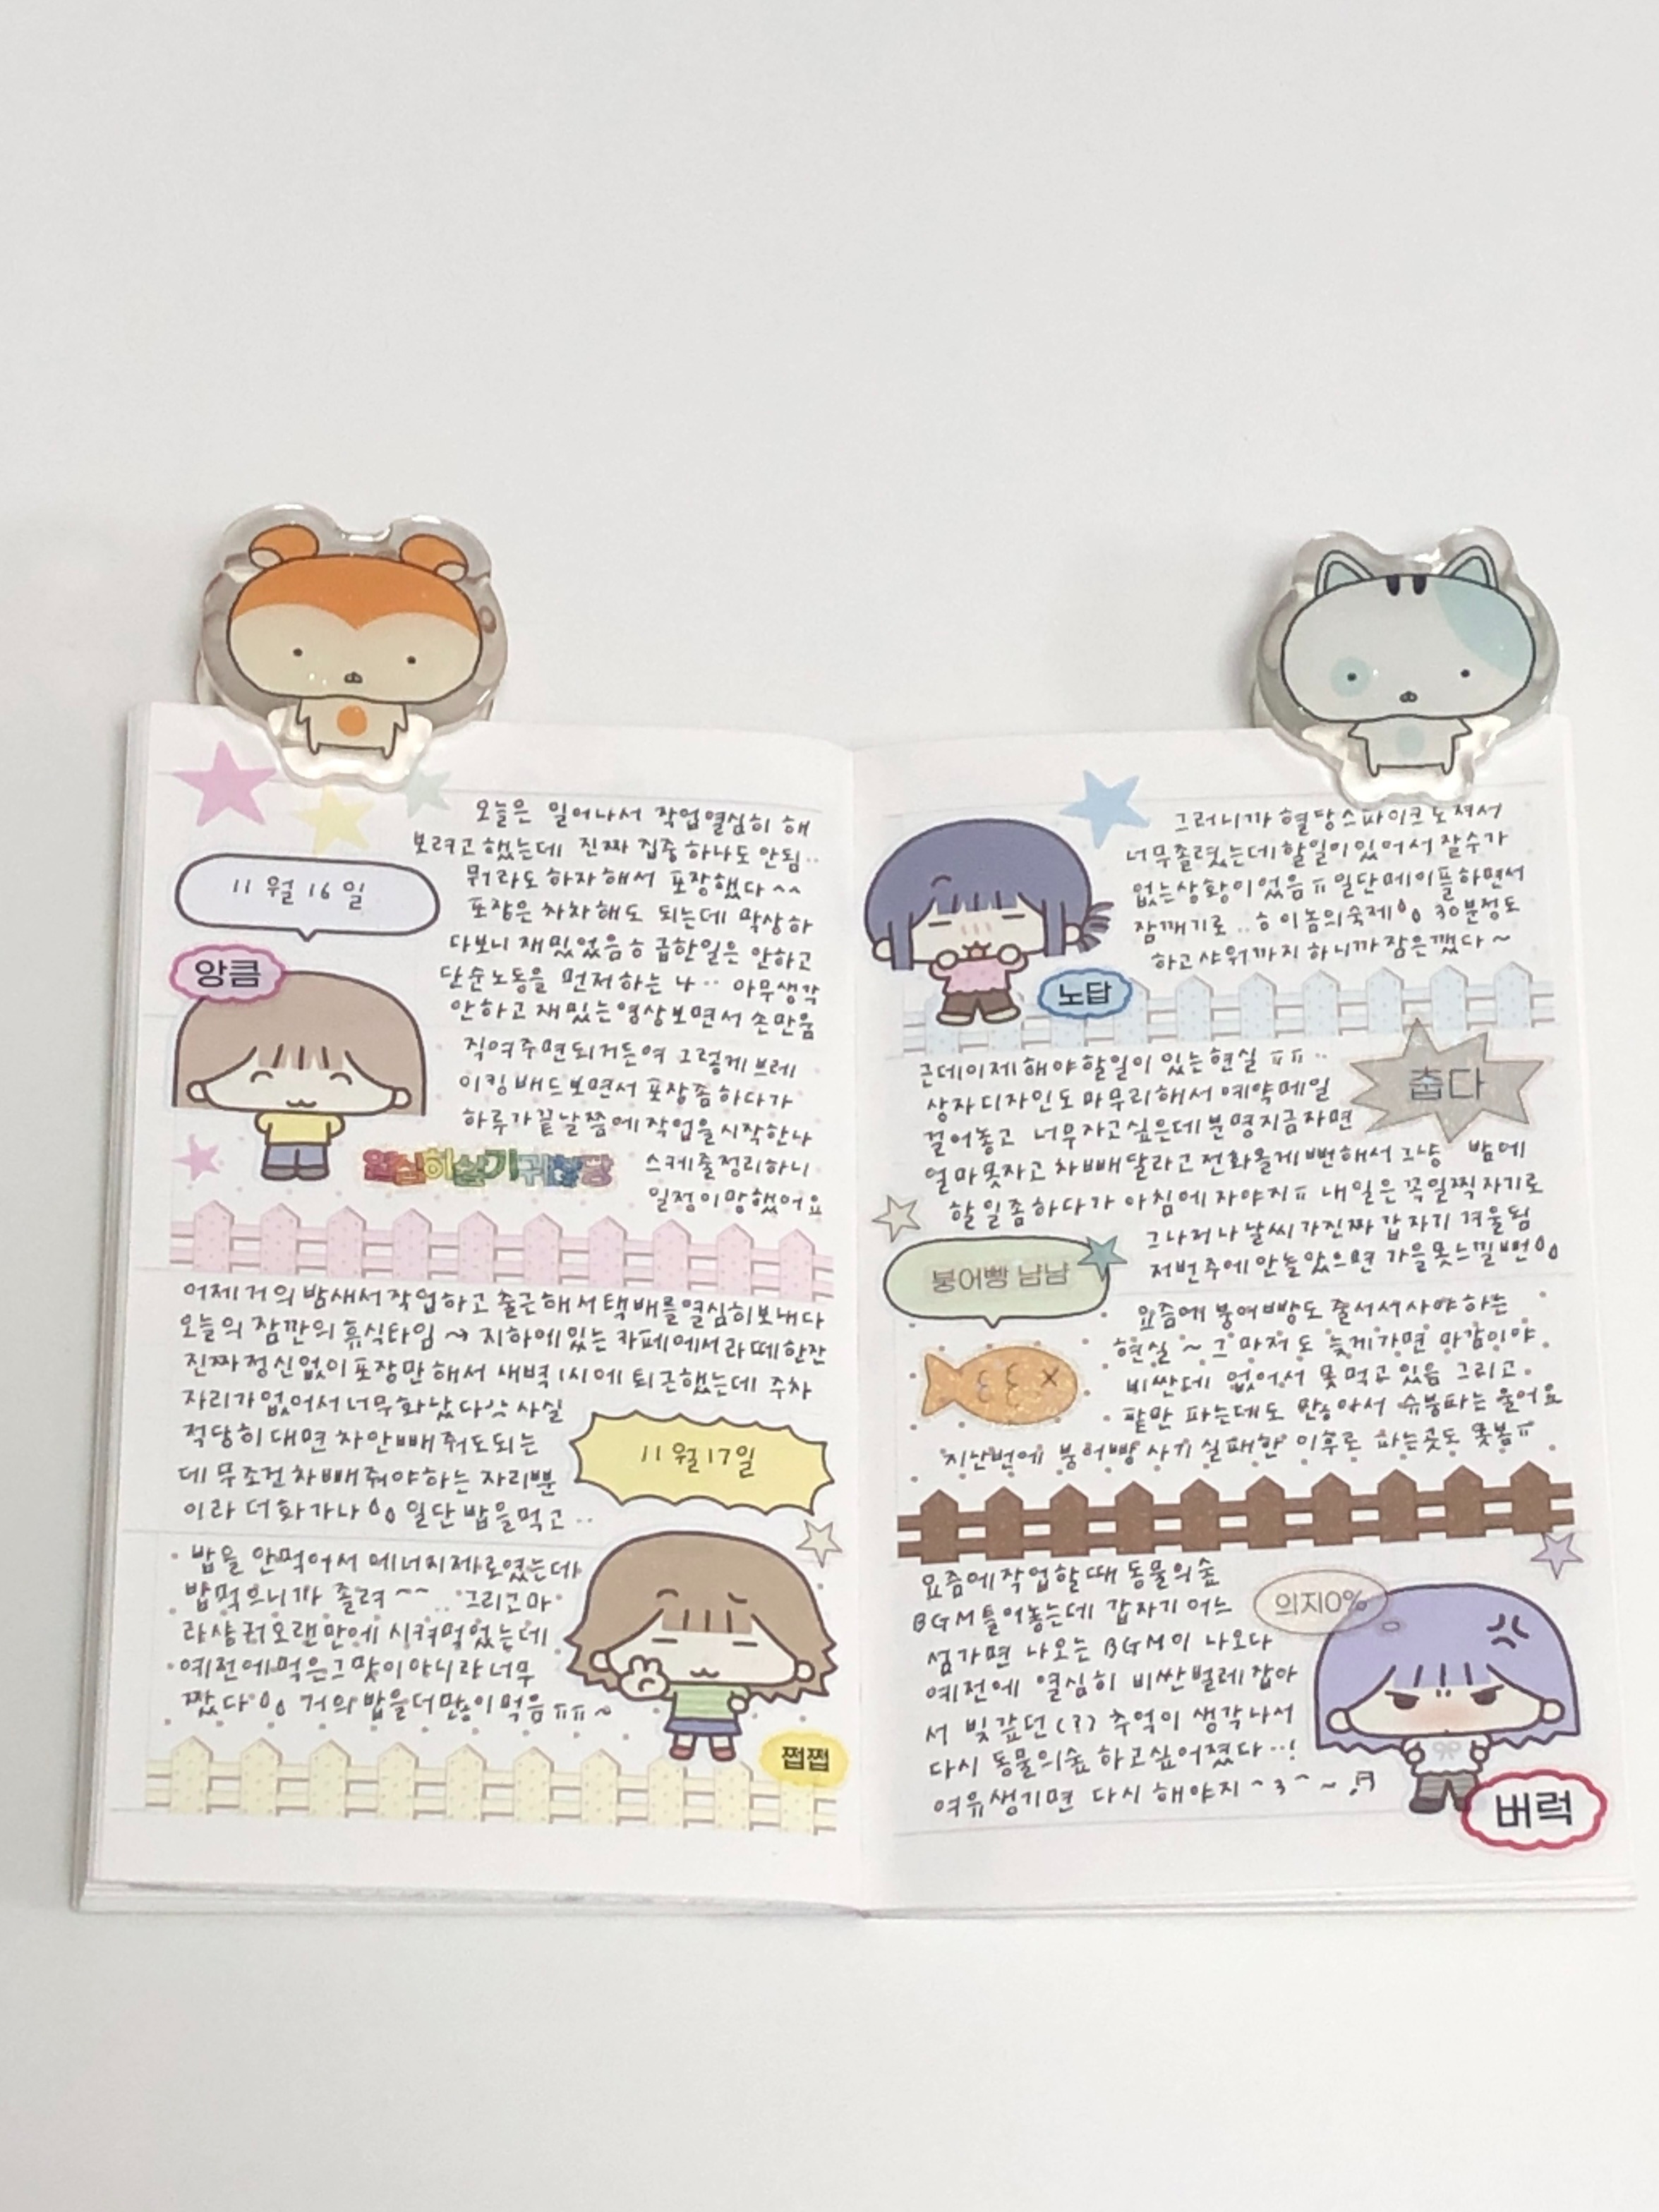 11월 16일
오늘은 일어나서 작업열심히 해
보려고 했는데 진짜 집중 하나도 안됨..
뭐라도 하자해서 포장했다^^
포장은 차차해도 되는데 막상하
다보니 재밌었음ㅎ 급한일은 안하고
단순노동을 먼저하는 나.. 아무생각
안하고 재밌는영상보면서 손만움
직여주면되거든여 그렇게 브레
이킹 배드보면서 포장좀하다가
하루가끝날쯤에 작업을시작한나
스케줄정리하니
일정이망했어요
앙큼
열심히살기귀찮당
어제거의밤새서작업하고 출근해서택배를열심히보내다
오늘의 잠깐의 휴식타임 ~> 지하에있는 카페에서라떼한잔
진짜정신없이포장만해서 새벽 1시에 퇴근했는데 주차
자리가없어서너무화났다 사실
적당히대면 차안빼줘도되는
데 무조건차빼줘야하는 자리뿐
이라 더화가나 일단밥을먹고..
11월17일
밥을 안먹어서 에너지제로였는데
밥먹으니까 졸려~~ ..그리고마
라샹궈오랜만에시켜먹었는데
예전에먹은그맛이아니라너무
짰다 거의밥을더많이먹음ㅠㅠ~
쩝쩝
그러니까 혈당스파이크노셔서
너무졸렸는데할일이있어서잘수가
없는상황이었음ㅠ일단메이플하면서
잠깨기로..ㅎ이놈의숙제 30분정도
하고샤워까지하니까잠은깼다~
노답
근데이제해야할일이 있는현실 ㅠㅠ..
상자디자인도마무리해서예약메일
걸어놓고 너무자고싶은데분명지금자면
얼마못자고 차빼달라고전화올게뻔해서그냥 밤에
할일좀하다가 아침에자야지ㅠ 내일은꼭일찍자기로
그나저나날씨가진짜갑자기겨울됨
저번주에안놀았으면가을못느낄뻔
춥다
붕어빵 냠냠
요즘에붕어빵도 줄서서사야하는
현실~그마저도 늦게가면 마감이야
비싼데 없어서 못먹고있음 그리고
팥만 파는데도 많아서 슈붕파는울어요
지난번에 붕어빵사기실패한 이후로 파는곳도못봄ㅠ
요즘에작업할때동물의숲
BGM틀어놓는데 갑자기어느
섬가면 나오는 BGM이 나오다
예전에 열심히 비싼벌레잡아
서 빚갚던(?) 추억이 생각나서
다시 동물의숲 하고싶어졌다..!
여유생기면 다시해야지^3^~♬
의지0%
버럭